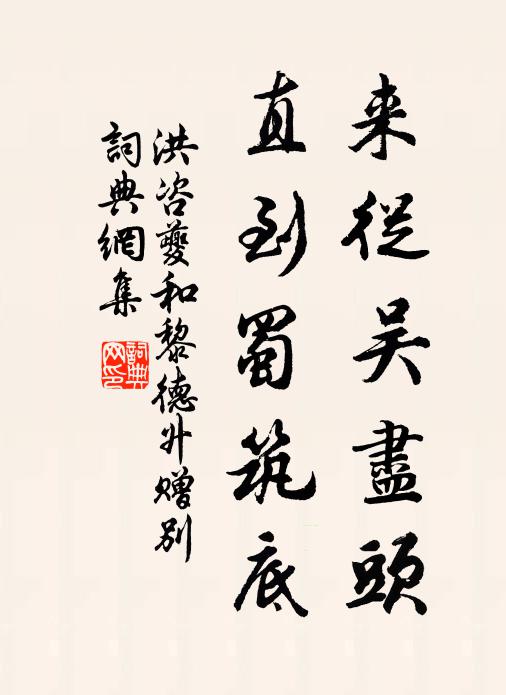 来從吴盡頭
直到蜀筑底
洪咨夔和黎德外贈別
詞典網集
詞典网印